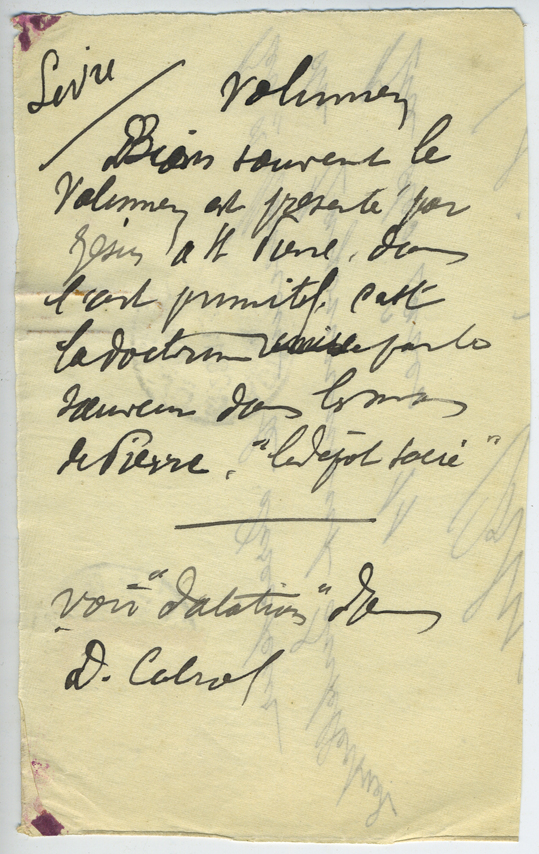 Livre
Volumen
Bien souvent le
Volumen est présenté par
Jésus à St Pierre, dans
l'art primitif, c'est
la doctrine remise par le
Sauveur dans les mains
de Pierre, "le dépôt sacré"
voir "dalatio" dans
D. Cabrol